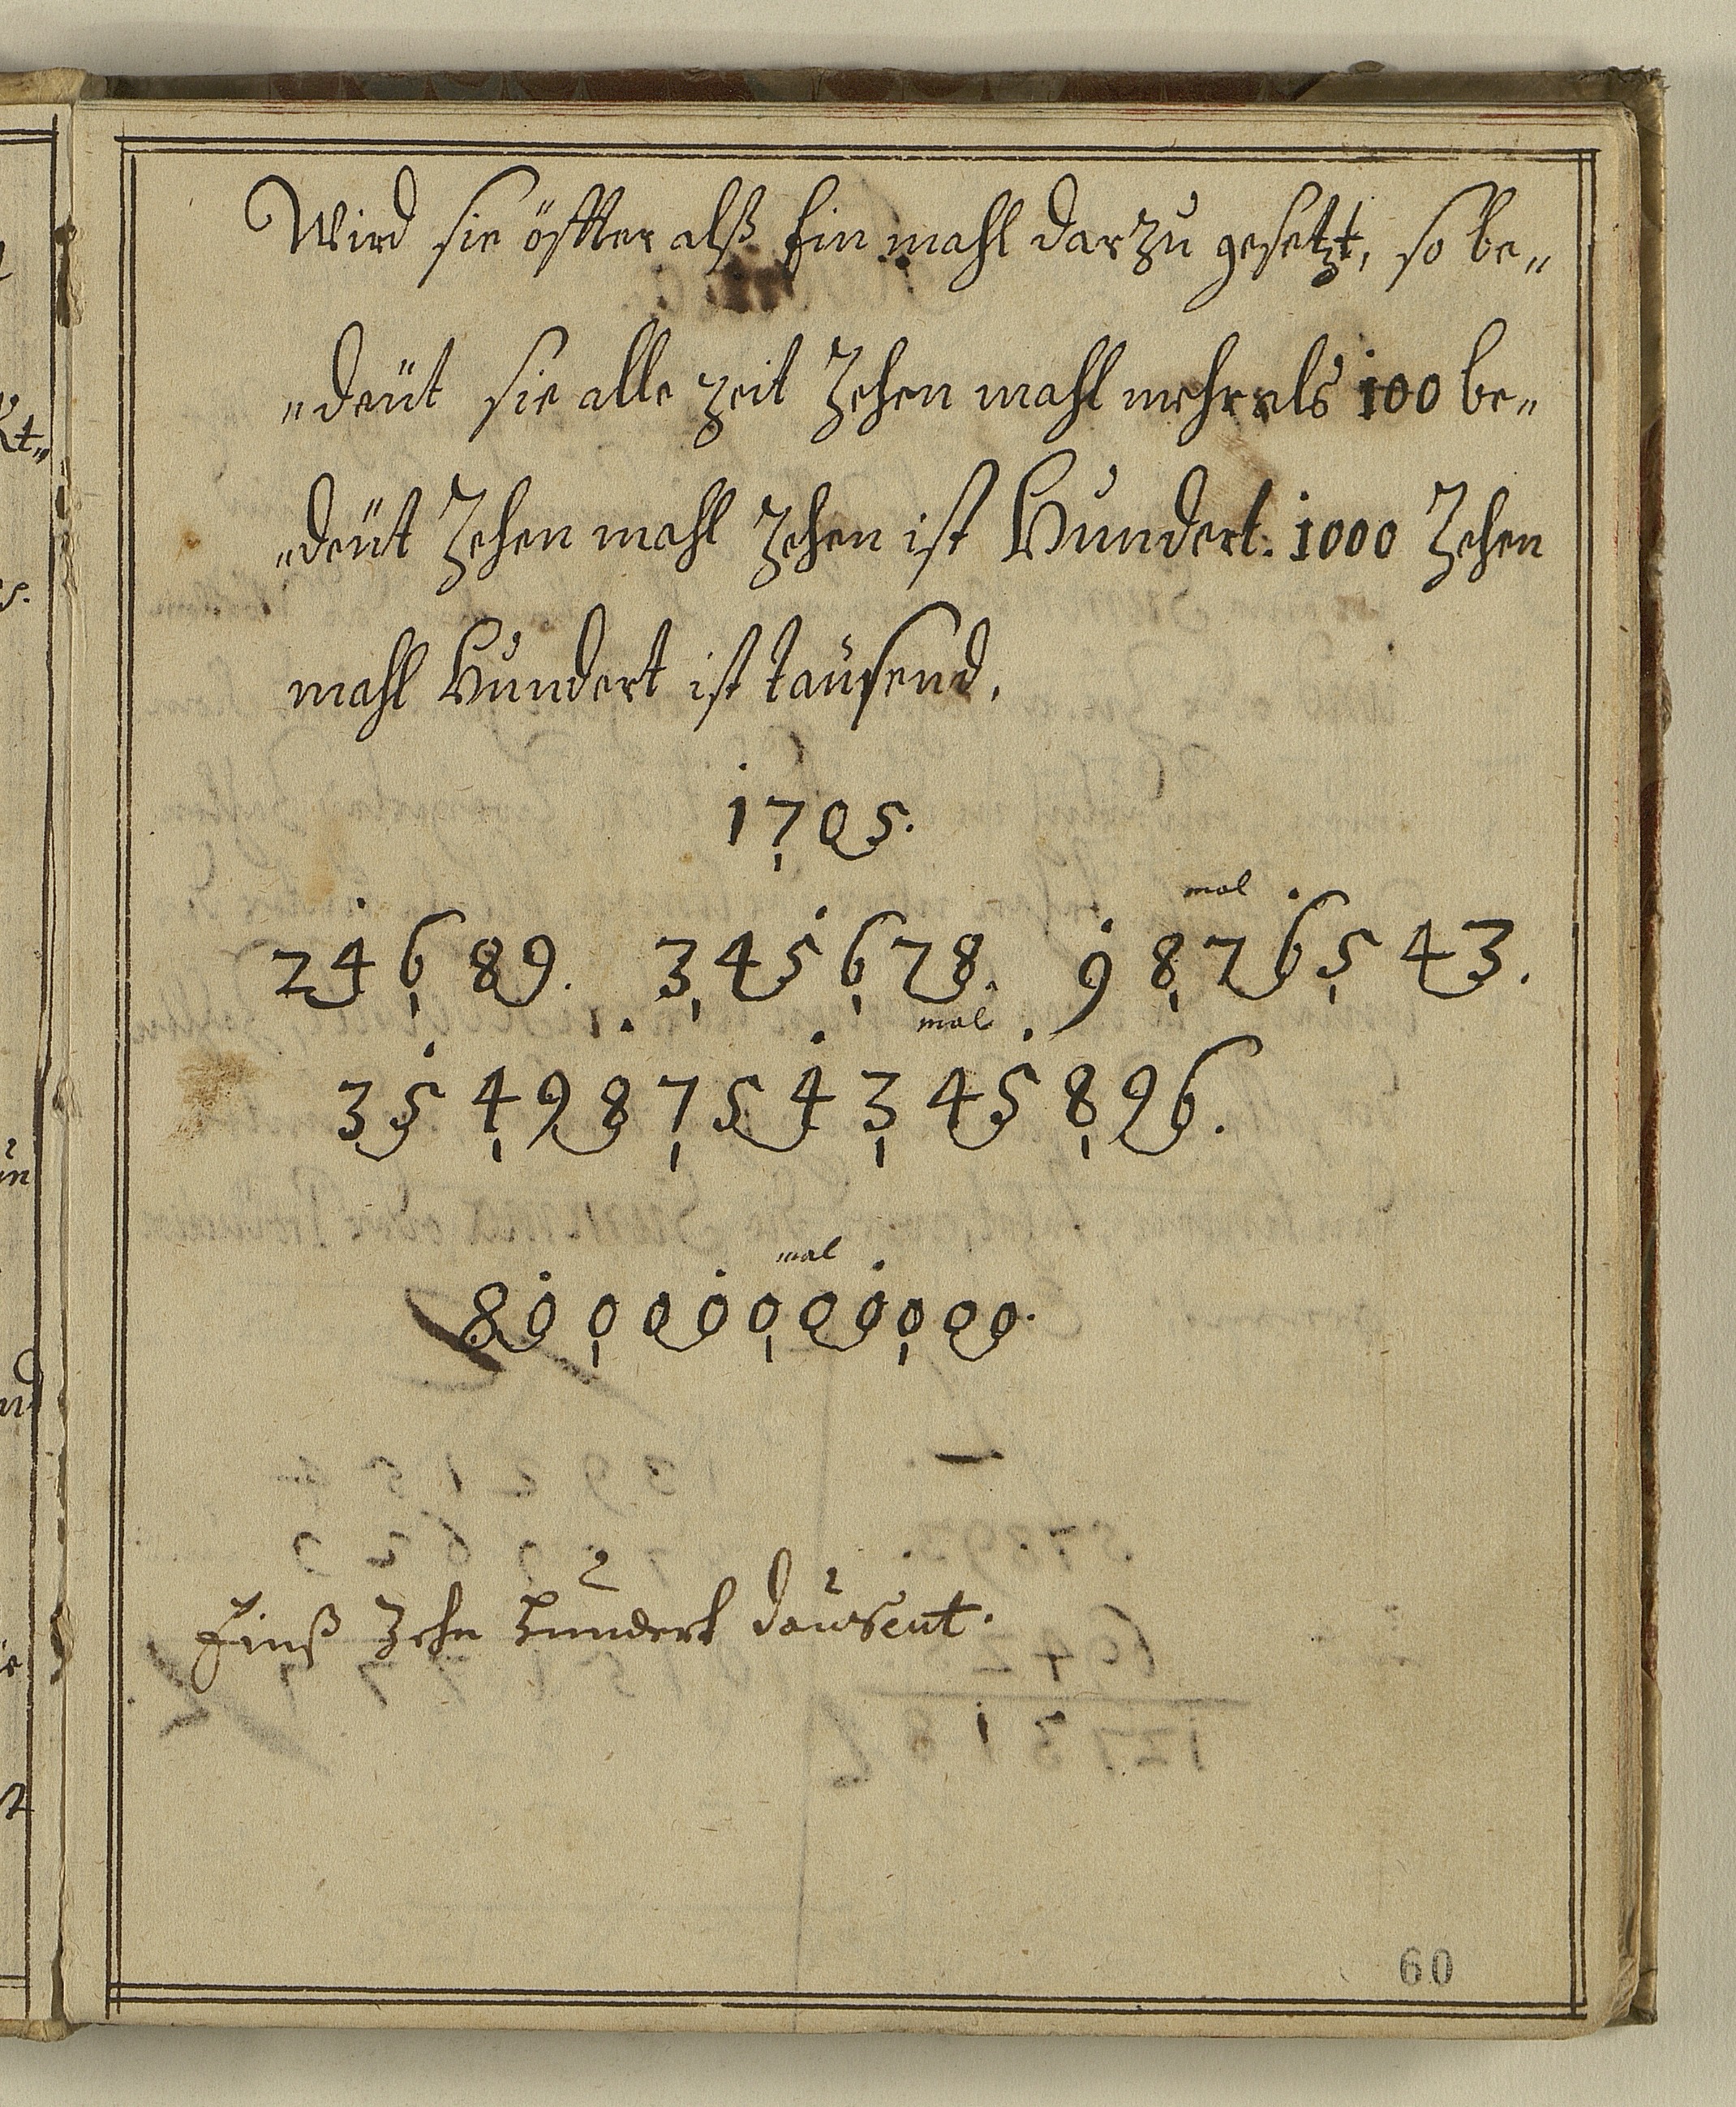 Wird sie öffter alß Ein mahl darzu gesetzt, so be„
„deüt sie alle zeit Zehen mahl mehr als 100 be„
„deüt Zehen mahl Zehen ist Hundert. 1000 Zehen
mahl Hundert ist tausend.
1705.
mal
24689. 345678. 9876543.
mal
35498754345896.
mal
80000000000.
Einß Zehn Hundert dausent.
60